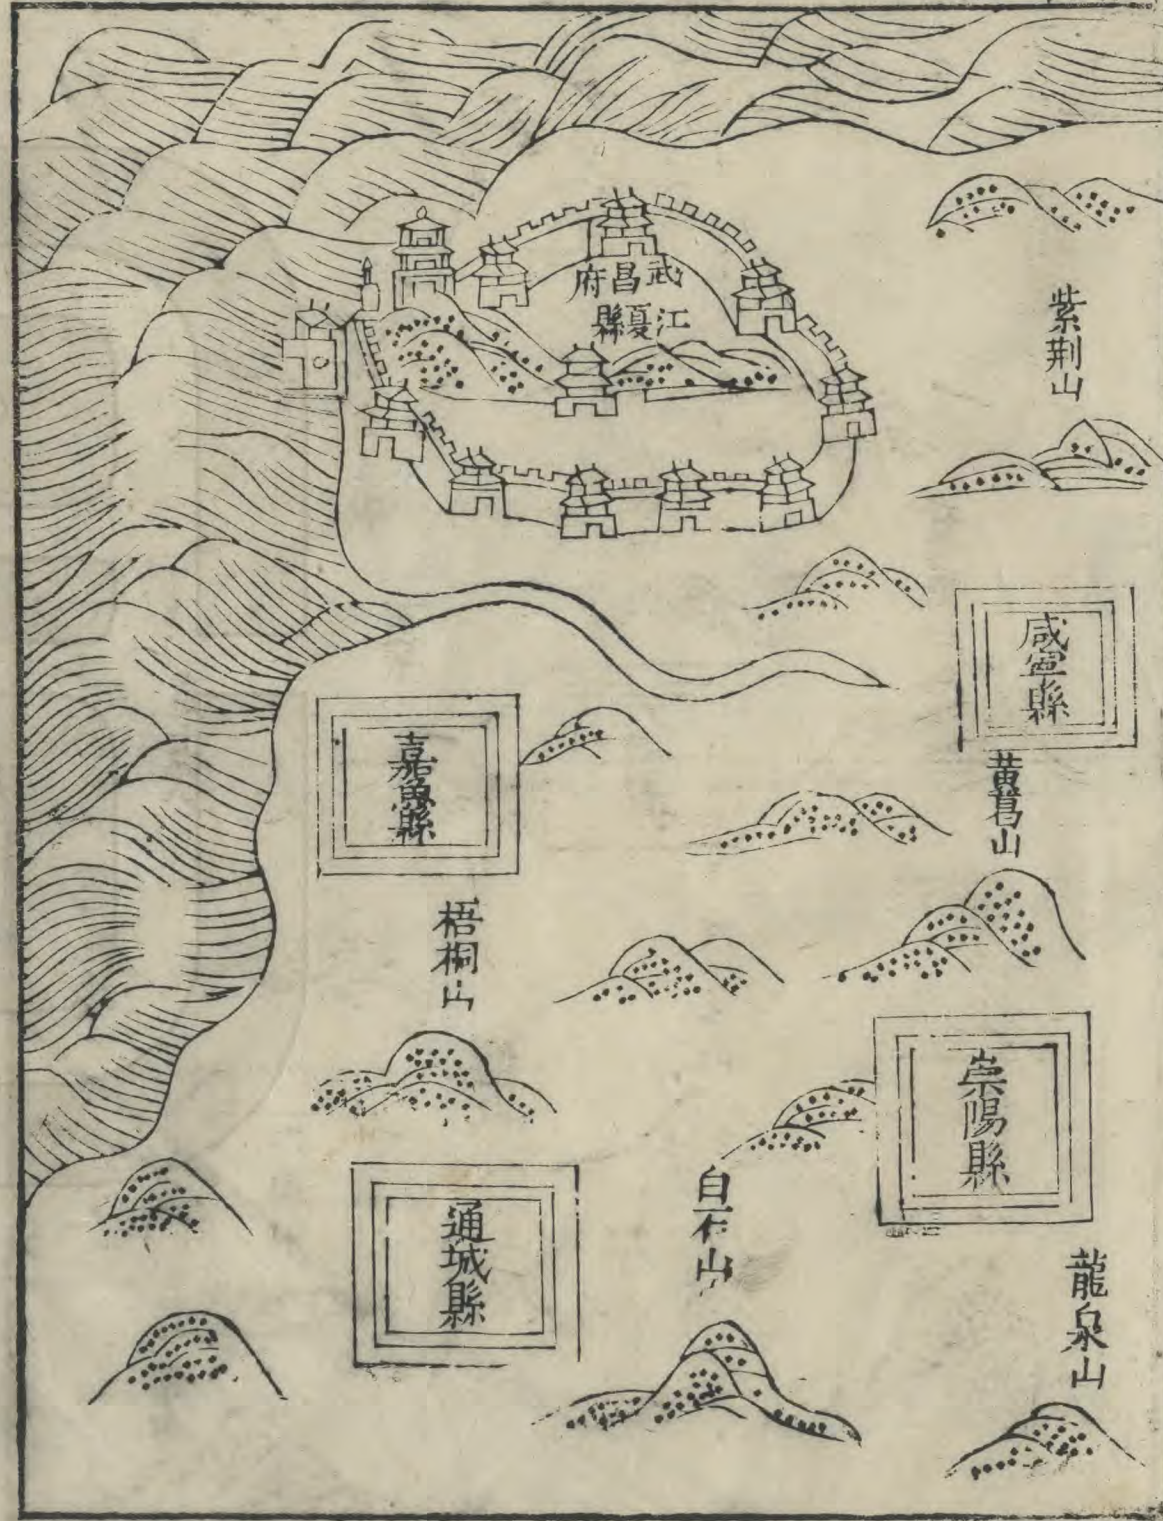 武昌府
江夏縣
紫荆山
咸寧縣
嘉魚縣
黃葛山
梧桐山
崇陽縣
通城縣
白石山
龍泉山